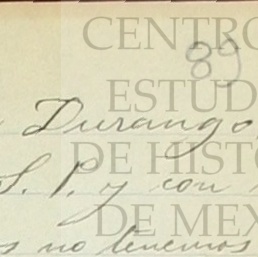 CENTRO
89
ESTUD
Durango,
DE HIST
S. P. y con
DE MEX
no tenemos